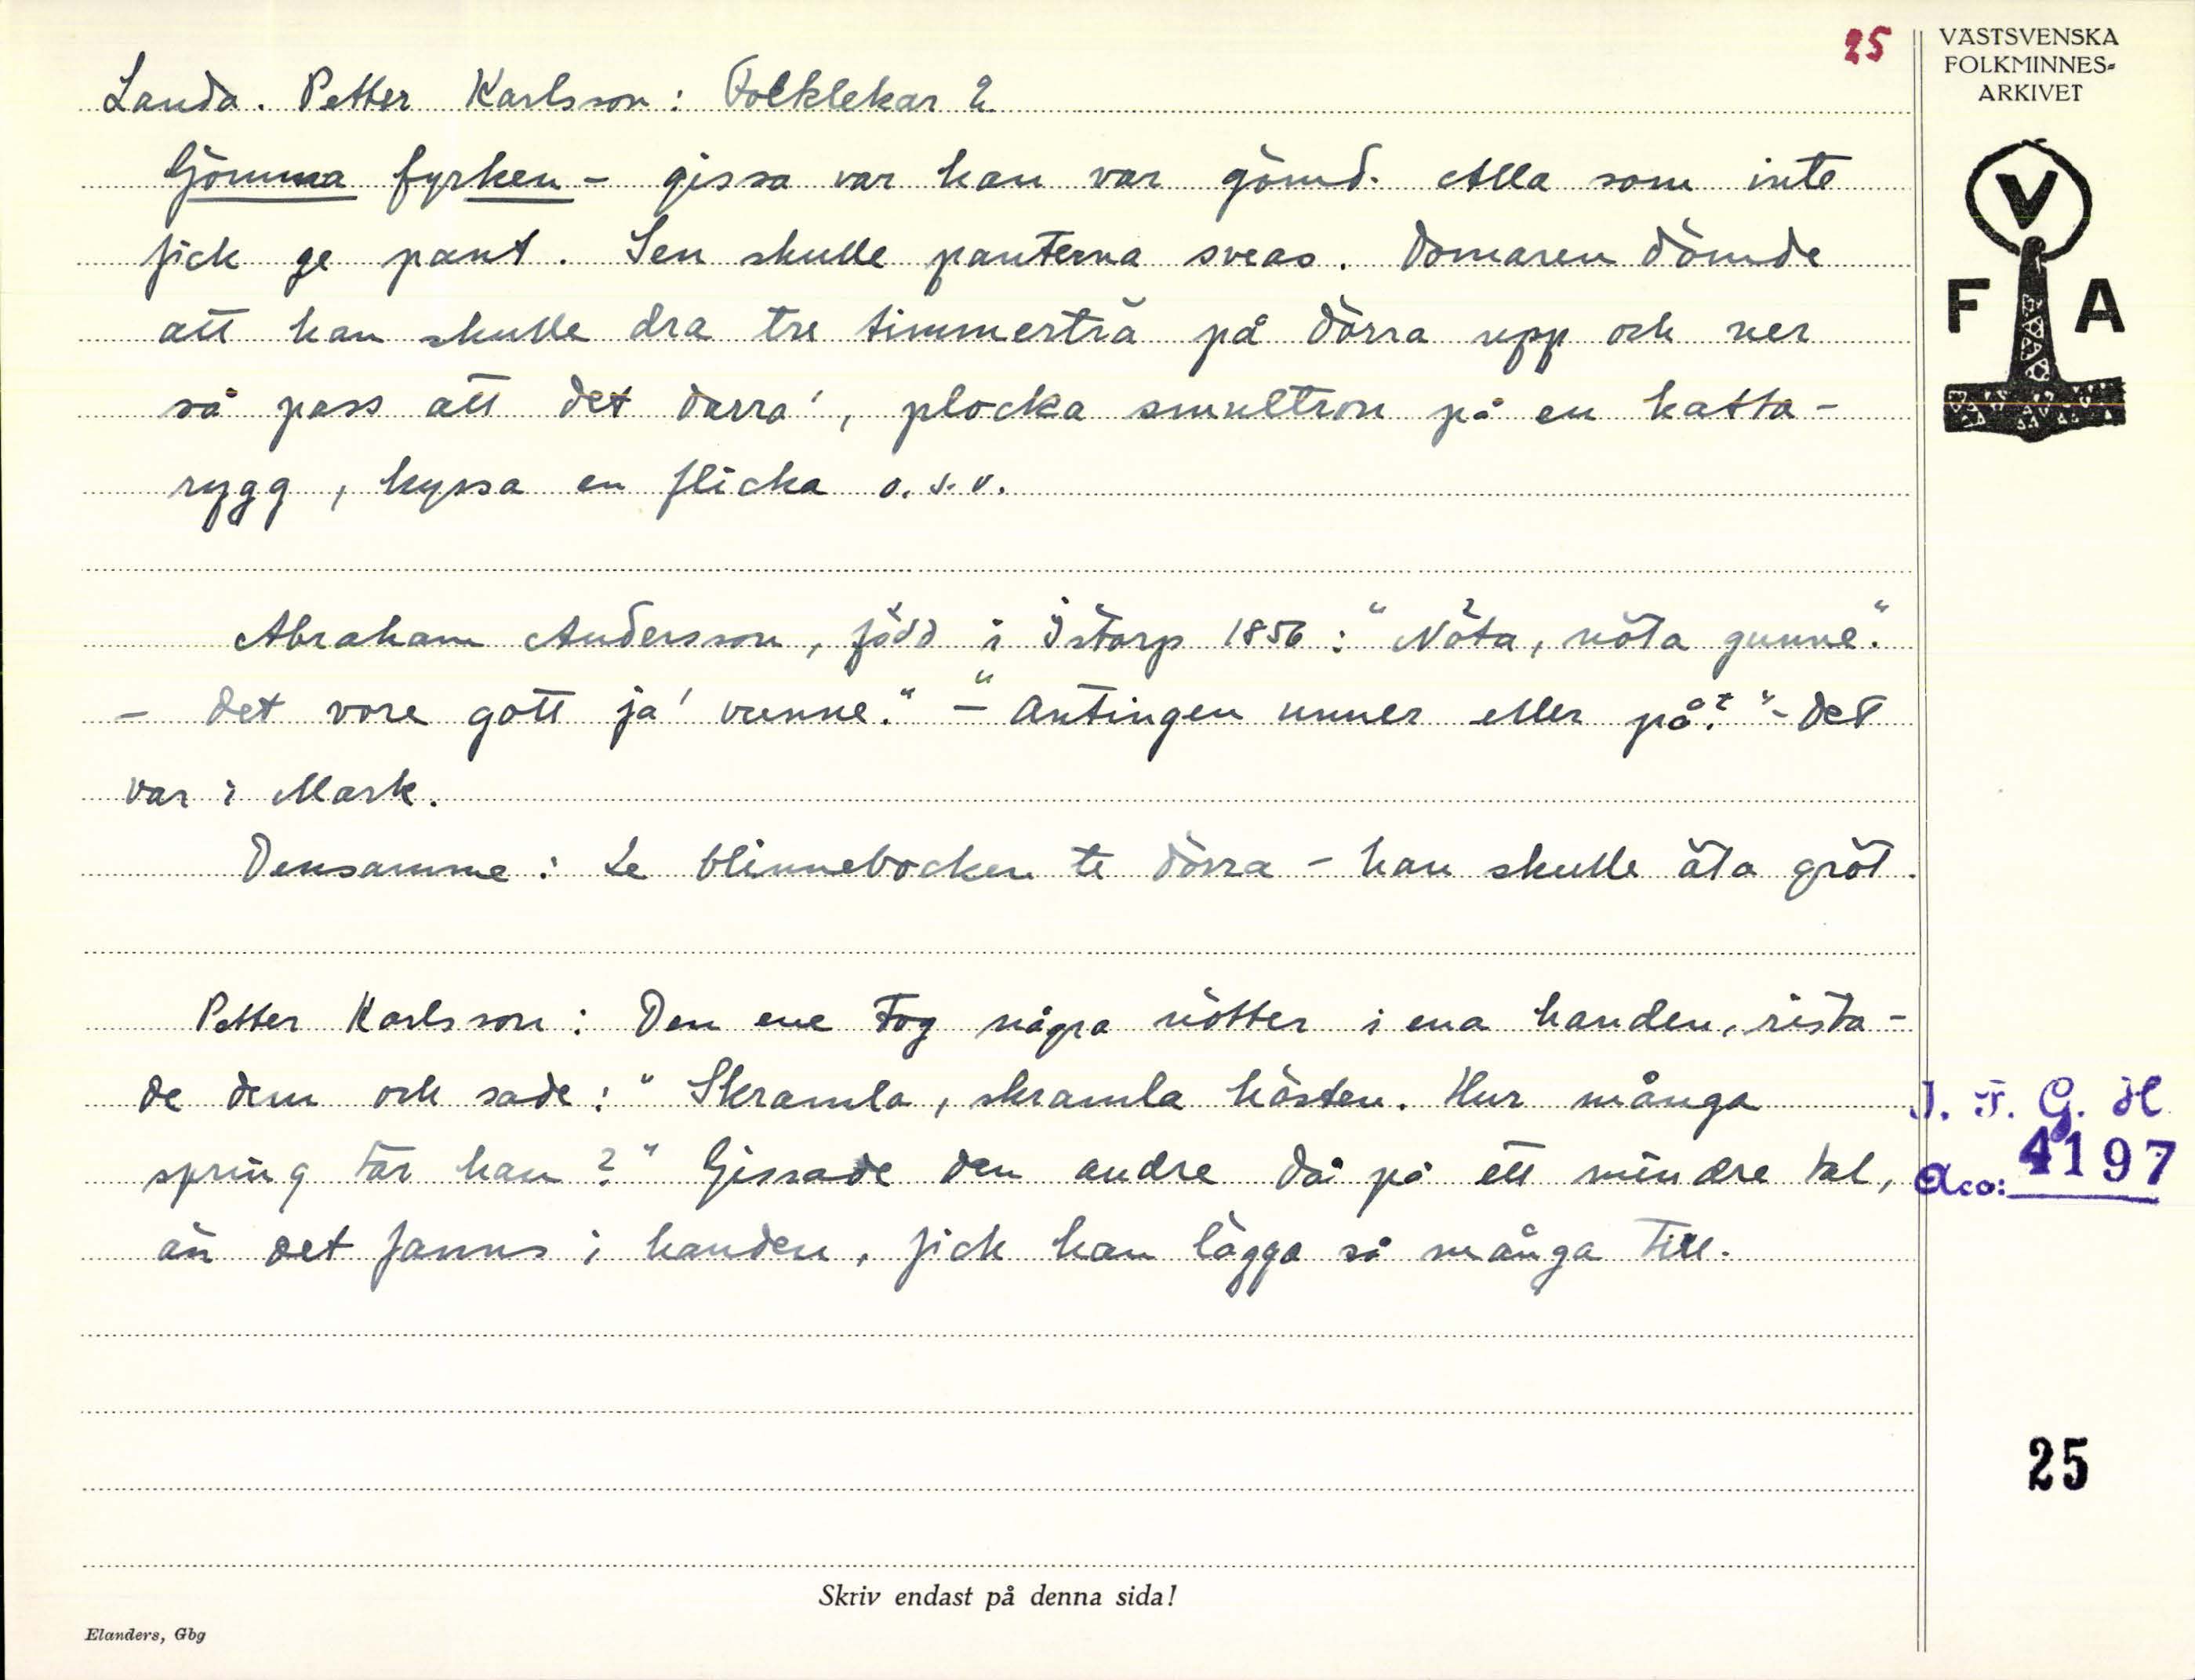 25
Landa. Petter Karlsson: Folklekar 2
Gömma fyrken - gissa var han var gömd. Alla som inte
fick ge pant. Sen skulle panterna sveas. Domaren dömde
att han skulle dra tre timmerträ på dörra upp och ner
så pass att det darra', plocka smultron på en katta-
rygg, kyssa en flicka o.s.v.
Abraham Andersson, född i Östorp 1856: "Nöta, nöta gunne."
- det vore gott ja' vunne." - "Antingen unner eller på?" - det
var i Mark.
Densamme: Le blinnebocken te dörra - han skulle äta gröt.
Petter Karlsson: Den ene tog några nötter i ena handen, rista-
de dem och sade: "Skramla, skramla hästen. Hur många
spring tar han?" Gissade den andre då på ett mindre tal,
än det fanns i handen, fick han lägga så många till.
VÄSTSVENSKA
FOLKMINNES-
ARKIVET
V
F A
I. F. G. H
Acc: 4197
25
Skriv endast på denna sida!
Elanders, Gbg